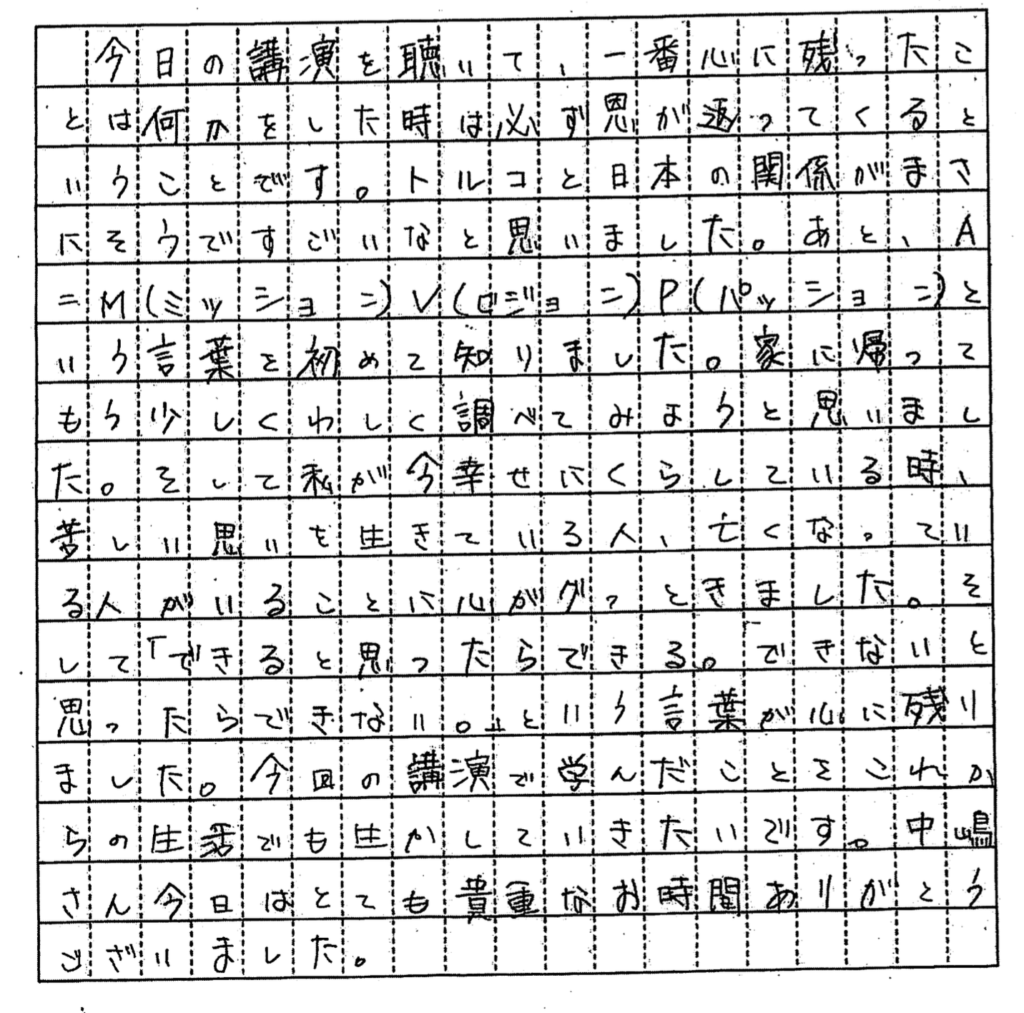 今日の講演を聴いて、一番心に残ったこ
とは何かをした時は必ず恩が返ってくると
いうことです。トルコと日本の関係がまさ
にそうですごいなと思いました。あと、A
=M(ミッション)V(ビジョン)P(パッション)と
いう言葉を初めて知りました。家に帰って
もう少しくわしく調べてみようと思いまし
た。そして私が今幸せにくらしている時、
苦しい思いを生きている人、亡くなってい
る人がいることに心がグっときました。そ
して「できると思ったらできる。できないと
思ったらできない。」という言葉が心に残り
ました。今回の講演で学んだことをこれか
らの生活でも生かしていきたいです。中嶋
さん今日はとても貴重なお時間ありがとう
ございました。